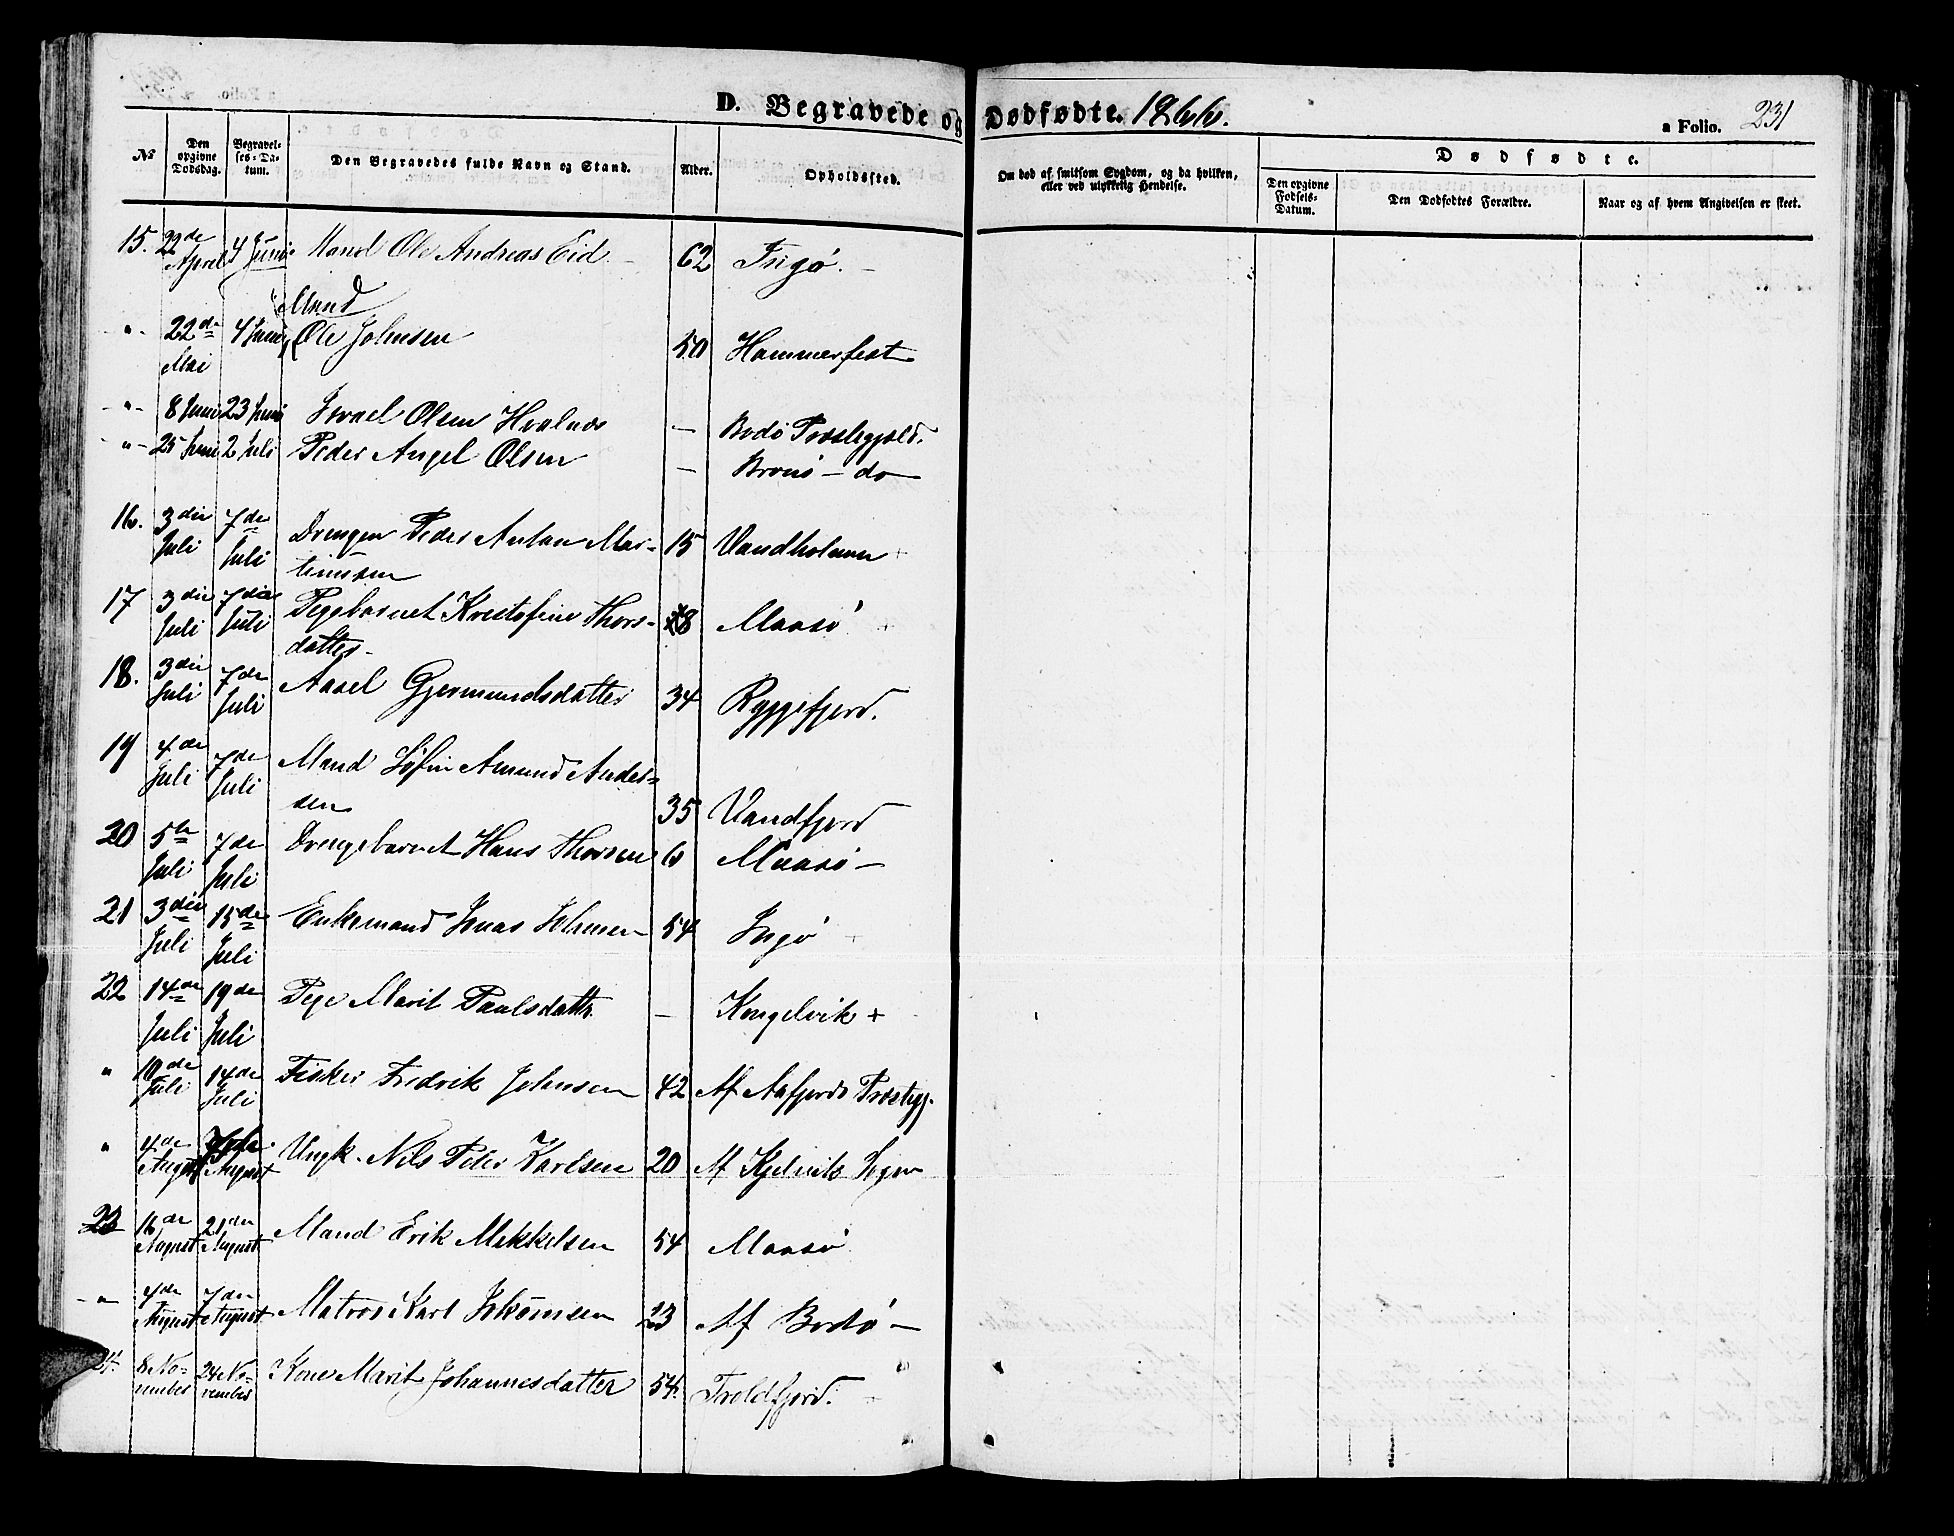 D. Begravede og Dødfødte. 1866.
a Folio. 231
No
Den opgivne Dødsdag.
Begravelses-Datum.
Den Begravedes fulde Navn og Stand.
Alder.
Opholdssted.
Om død af smitsom Sygdom, og da hvilken, eller ved ulykkelig Hendelse.
Dødfødte.
Den opgivne Fødsels-Datum.
Den Dødfødtes Forældre.
Naar og af hvem Angivelsen er skeet.
15. 22de April 4 Juni Mand Ole Andreas Eid 62 Ingø.
" 22de Mai 4 Juni Mand Ole Johnsen 50 Hammerfest
" 8 Juni 23 Juni Israel Olsen Hvalnæs — Bodø Præstegjeld.
" 25 Juni 2 Juli Peder Angel Olsen — Brønø — do
16. 3die Juli 7de Juli Drengen Peder Antan Mar-
tinussen 15 Vandholmen
17 3die Juli 7die Juli Pigebarnet Kristofine Thors-
datter 8 Maasø
18. 3die Juli 7de Juli Aasel Gjermundsdatter 34 Ryggefjord.
19 4de Juli 7de Juli Mand Amund Ander-
sen 35 Vandfjord
20 5te Juli 7de Juli Drengebarnet Hans Thorsen 6 Maasø —
21 3die Juli 15de Juli Enkemand Jonas Johnsen 54 Ingø
22 14de Juli 19de Juli Pige Marit Paulsdattr. — Kongelvik +
" 10de Juli 14de Juli Fisker Fredrik Johnsen 42 Af Aafjords Præstegj.
" 4de August August Ungk. Nils Peter Karlsen 20 Af Kjelviks Sogn
23 16de August 21de August Mand Erik Mikkelsen 54 Maasø
" 4de August 7de August Matros Karl Jokomsen 23 Af Bodø —
24. 8 No-
vember 24 No-
vember Kone Marit Johannesdatter 54. Troldfjord.